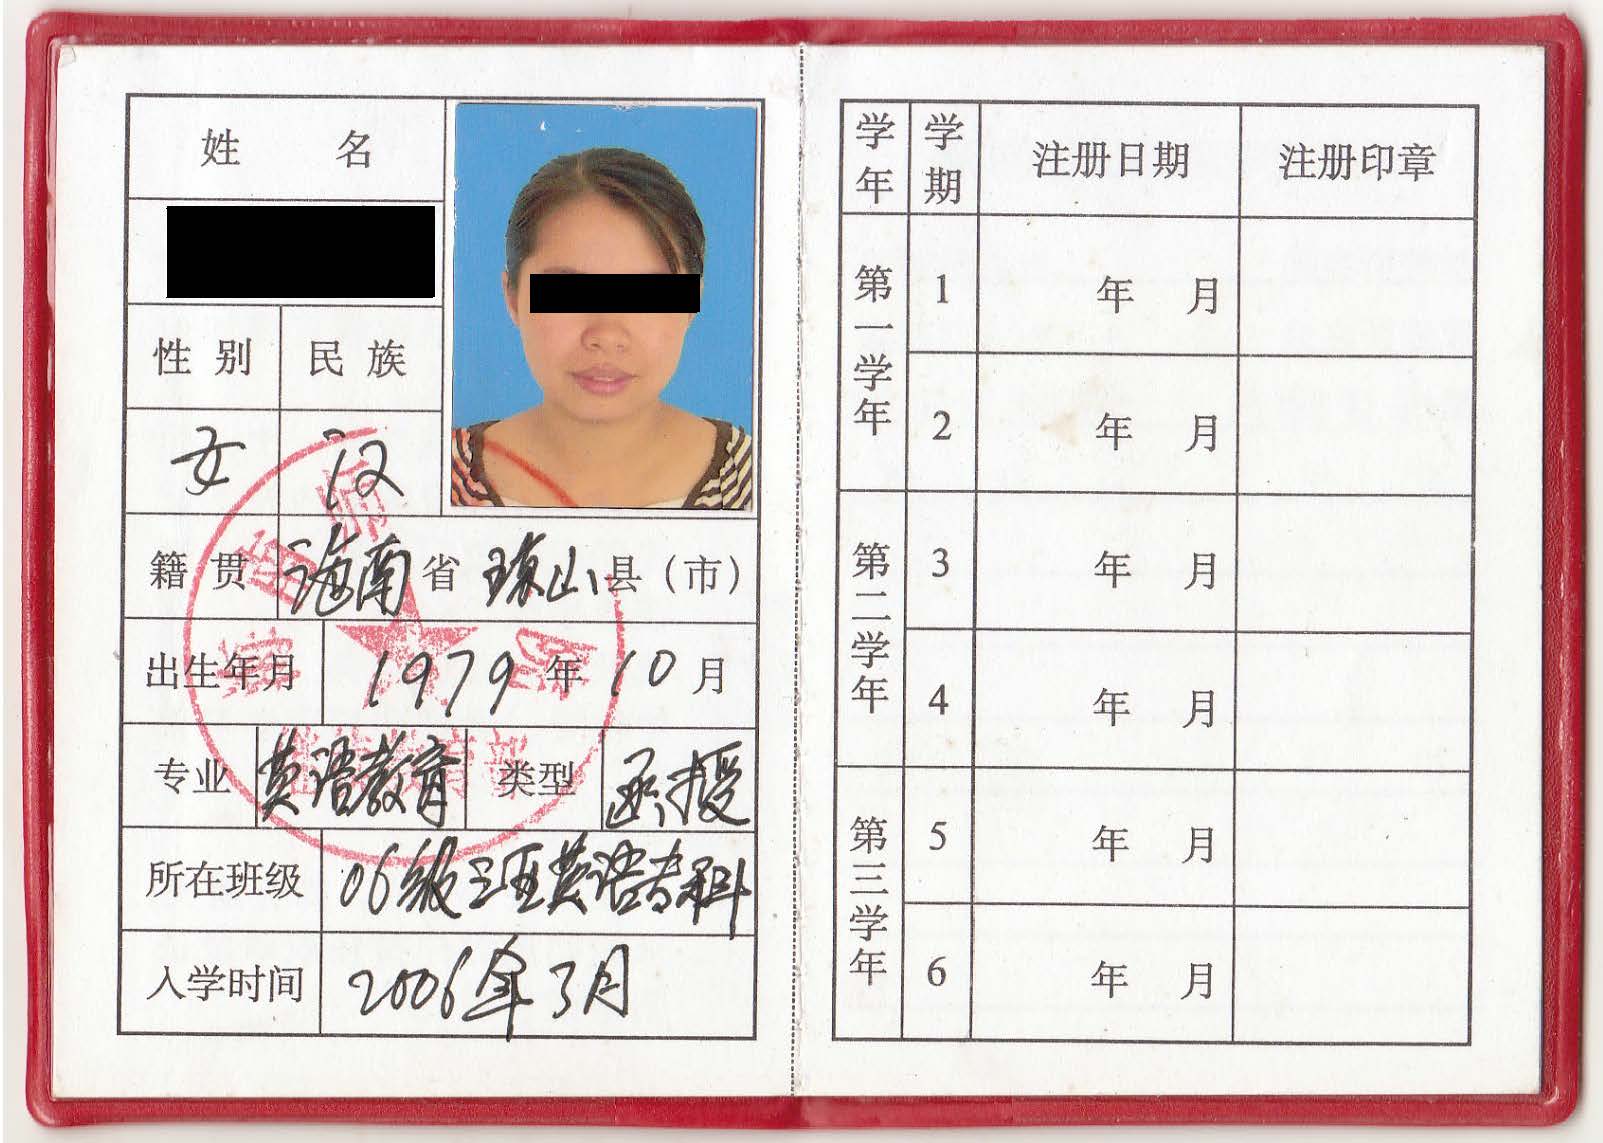 姓 名
性别 民族
女 汉
籍贯 海南省 琼山县（市）
出生年月 1979年10月
专业 英语教育 类型 函授
所在班级 06级三班英语专科
入学时间 2006年3月
学年 学期 注册日期 注册印章
第一学年 1 年 月
2 年 月
第二学年 3 年 月
4 年 月
第三学年 5 年 月
6 年 月